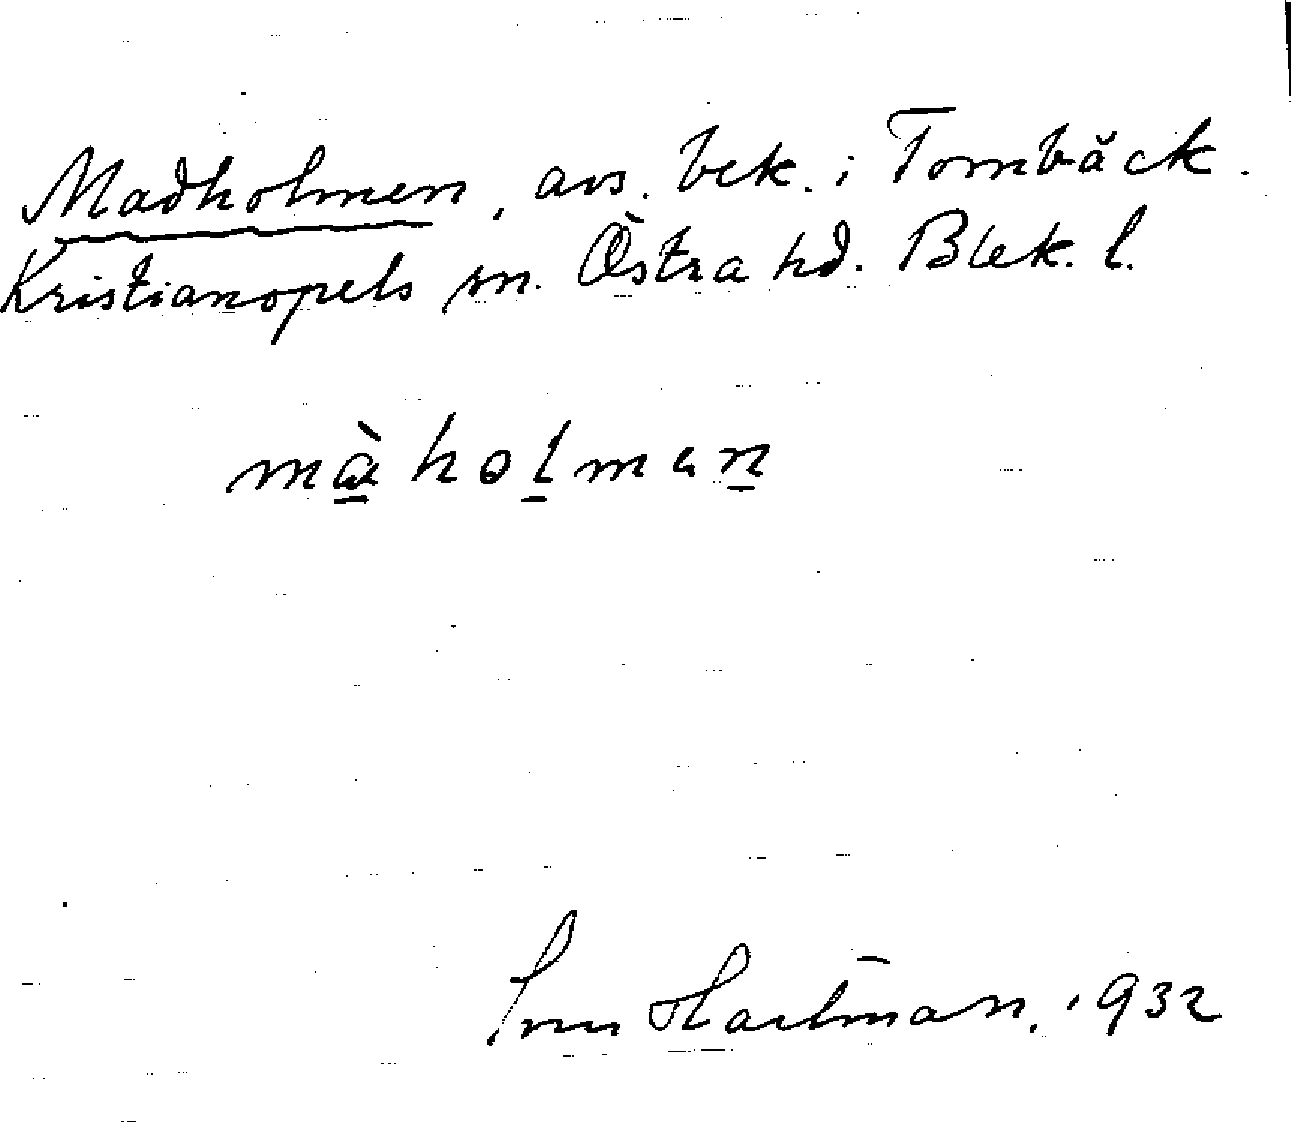 Madholmen, avs. bek. i Tombäck.
Kristianopels sn. Östra hd. Blek. l.
mà̱hoḻmaṉ
Hartman. 1932